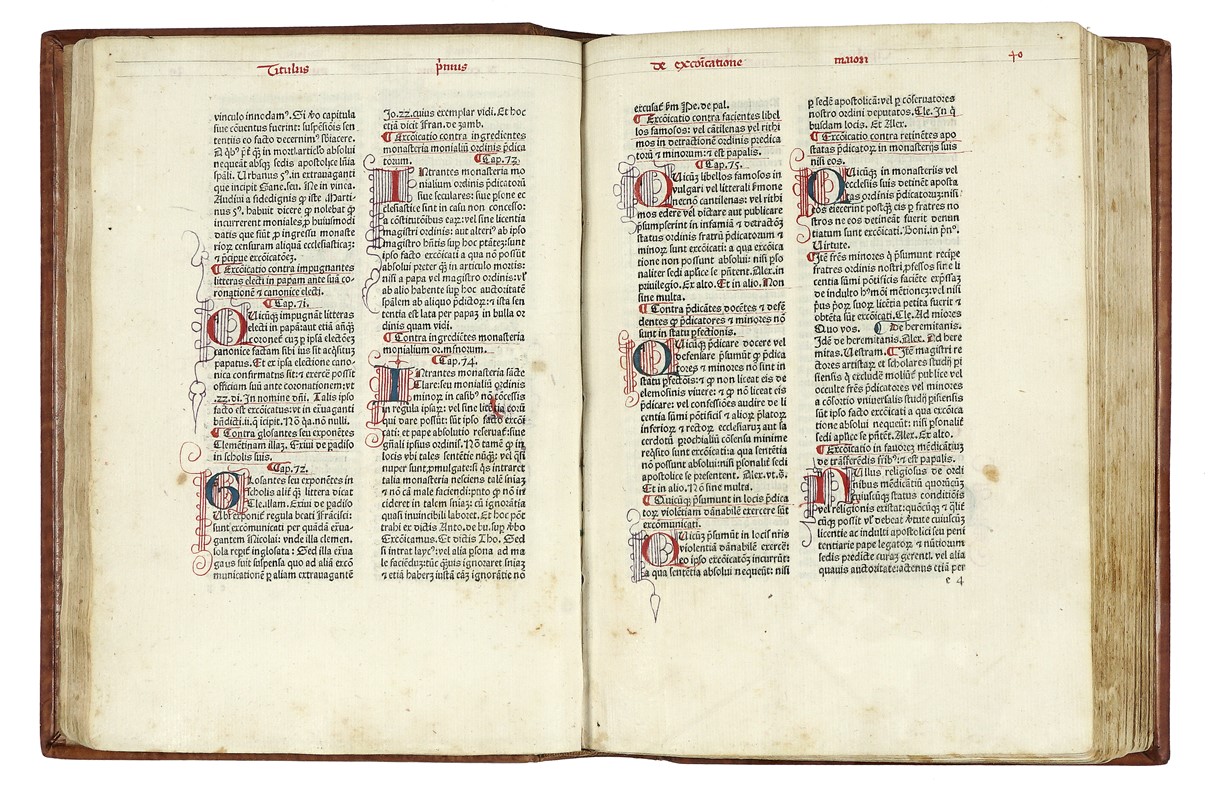 Titulus pͥmus
vinculo innodamꝰ. Si v̓o capitula
siue cōuentus fuerint: suspēsiōis sen
tentiis eo facto decernimꝰ sbiacere.
nequeāt absq̨ sedis apostolice lñia
spāli. Urbanus 5ꝰ. in extrauaganti
que incipit Sane. seu. Ne in vinea.
Audiui a fidedignis q̄ iste Marti-
nus 5ꝰ. habuit dicere q̄ nolebat q̄
incurrerent moniales ꝓ huiusmodi
datis que sūt ꝓ ingressu monaste
rioꝝ censuram aliquā ecclesiasticaꝫ:
⁊ p̄cipue excōicatōeꝫ.
¶ Excōicatio contra impugnantes
litteras electi in papam ante suā co-
ronationē ⁊ canonice electi.
¶ Cap. 71.
Quicūq̨ impugnāt litteras
electi in papā: aut etiā añq̄ꝫ
coronet̄ cuꝫ ꝑ ipsa electōeꝫ
canonice factam sibi ius sit acq̄situꝫ
papatus. Et ex ipsa electione cano-
nica confirmatus sit: ⁊ exercē possit
officium suū ante coronationem: vt
.22. di. In nomine dñi. Talis ipso
facto est excōicatus: vt in ex̄uaganti
bñdicti. ii. q̄ icipit. Nō qa. nō nulli.
¶ Contra glosantes seu exponētes
Clemētinam illaꝫ. Exiui de padiso
in scholis suis.
¶ Cap. 72.
Glosantes seu exponētes in
scholis alif q̄ꝫ littera dicat
Cle. illam. Exiui de padiso
Ubi exponit̄ regula beati Frācisci:
sunt excōmunicati per quādā ex̄ua-
gantem Nicolai: vnde illa clemen.
sola repit̄ inglosata: Sed illa ex̄ua
gās fuit suspensa quo ad aliā excō
municationē ꝑ aliam extrauagantē
Jo. 22. cuius exemplar vidi. Et hoc
etiā dicit Fran. de zamb.
¶ Excōicatio contra ingredientes
monasteria monialiū ordinis p̄dica
torum. ¶ Cap. 73.
Intrantes monasteria mo
nialium ordinis p̄dicatorū
siue seculares: siue ꝑsone ec
clesiastice sint in casu non concesso:
a cōstitutōibus eaꝝ: vel sine licentia
magistri ordinis: aut alteriꝰ ab ipso
magistro hñtis suꝑ hoc ptāteꝫ: sunt
ipso facto excōicati: a qua nō possūt
absolui preter q̄ꝫ in articulo mortis:
nisi a papa vel magistro ordinis: vꝉ
ab alio habente suꝑ hoc auctoritatē
spālem ab aliquo p̄dictoꝝ: ⁊ ista sen
tentia est lata per papaꝫ in bulla or
dinis quam vidi.
¶ Contra ingrediētes monasteria
monialium or. minorum.
¶ Cap. 74.
Intrantes monasteria sācte
Clare: seu monialiū ordinis
minoꝝ in casibꝰ nō cōcessis
in regula ipsaꝝ: vel sine licētia eoꝝ
qui dare possūt: sūt ipso facto excōi
cati: et pape absolutio reseruat̄: siue
gñali ipsius ordinis. Nō tamē q̄ꝫ in
locis vbi tales sentētie nūq̄ꝫ: vel q̄si
nuper sunt ꝓmulgate: si q̄s intraret
talia monasteria nesciens talē sniaꝫ
⁊ nō cā male faciendi: puto q̄ nō in
cideret in talem sniaꝫ: cū ignorātia
quasi inuincibili laboret. Et hoc pōt
trahi ex dictis Anto. de bu. suꝑ v̓bo
Excōicamus. Et dictis Tho. Sed
si intrat laycꝰ: vel alia ꝑsona ad ma
le faciēduꝫ: tūc q̄uis ignoraret sniaꝫ
⁊ etiā haberꝫ iustā cāꝫ ignorātie nō
de excōicatione maiori 40
excusat̄ s̄m Pe. de pal.
¶ Excōicatio contra facientes libel
los famosos: vel cātilenas vel rithi
mos in detractionē ordinis predica
torū ⁊ minorum: ⁊ est papalis.
¶ Cap. 75.
Quicūq̨ libellos famosos in
vulgari vel litterali ẜmone
necnō cantilenas: vel rithi
mos edere vel dictare aut publicare
p̄sumpserint in infamiā ⁊ detractōeꝫ
status ordinis fratrū p̄dicatorum ⁊
minoꝝ sunt excōicati: a qua excōica
tione non possunt absolui: nisi ꝑso
naliter sedi aplice se p̄ntent. Alex. in
priuilegio. Ex alto. Et in alio. Non
sine multa.
¶ Contra p̄dicātes docētes ⁊ defē
dentes q̄ p̄dicatores ⁊ minores nō
sunt in statu ꝑfectionis.
Quicūq̨ p̄dicare docere vel
defensare p̄sumūt q̄ p̄dica
tores ⁊ minores nō sint in
statu ꝑfectōis: ⁊ q̄ non liceat eis de
elemosinis viuere: ⁊ q̄ nō liceat eis
p̄dicare: vel confessiōes audire de li
centia sūmi pōtificis ⁊ alioꝝ p̄latoꝝ
inferioꝝ ⁊ rectoꝝ ecclesiaruꝫ aut sa
cerdotū ꝓchialiū cōsensu minime
req̄sito sunt excōicati: a qua sentētia
nō possunt absolui: nisi ꝑsonalit̄ sedi
apostolice se presentent. Alex. vt. s̄.
Et in alio. Nō sine multa.
¶ Quicūq̨ p̄sumunt in locis p̄dica
toꝝ violētiam dānabilē exercere sūt
excommunicati.
Quicūq̨ p̄sumūt in locis nr̄is
violentiā dānabilē exercē:
eo ipso excōicatōꝫ incurrūt:
a qua sentētia absolui nequeūt: nisi
ꝑ sedē apostolicā: vel ꝑ cōseruatores
nostro ordini deputatos. Cle. In q̄
busdam locis. Et Alex.
¶ Excōicatio contra retinētes apo
statas p̄dicatoꝝ in monasterijs suis
nisi eos.
Quicūq̨ in monasteriis vel
ecclesiis suis detinēt aposta
tas ordinis p̄dicatoruꝫ: nisi
eos eiecerint postq̄ꝫ eis ꝑ fratres no
stros ne eos detineāt fuerit denun
tiatum sunt excōicati. Boni. in p̄nꝰ.
Virtute.
¶ Itē fr̄es minores q̄ p̄sumunt recipe
fratres ordinis nostri ꝓfessos sine li
centia sūmi pōtificis faciēte exp̄ssaꝫ
de indulto hꝰmōi mētioneꝫ: vel nisi
pꝰus pͥoꝝ suoꝝ licētia petita fuerit ⁊
obtēta sūt excōicati. Cle. Ad miores
Quo vos. ¶ De heremitanis.
Idē de heremitanis. Alex. Ld here
mitas. Vestram. ¶ Itē magistri re
ctores artistaꝝ et scholares studij pi
siensis q̄ excludē moliūt̄ publice vel
occulte fr̄es p̄dicatores vel minores
a cōsortio vniuersalis studij pisiensis
sūt ipso facto excōicati a qua excōica
tione absolui nequeūt: nisi ꝑsonalit̄
sedi aplice se p̄ntēt. Alex. Ex alto.
¶ Excōicatio in fauorez mēdicātiuꝫ
de trāsferēdis fr̄ibꝰ: ⁊ est papalis.
Nullus religiosus de ordi
nibus mēdicātiū quoꝝcūq̨
cuiuscūq̨ status conditiōis
vel religionis existat: quōcūq̨ ⁊ q̄lit̄
cūq̨ possit vꝉ debeat v̓tute cuiuscūꝫ
licentie ac indulti apostolici seu peni
tentiarie pape legatoꝝ ⁊ nūtiorum
sedis predicte curaꝫ gerentꝭ. vel alia
quauis auctoritate: actenus etiā per
e 4